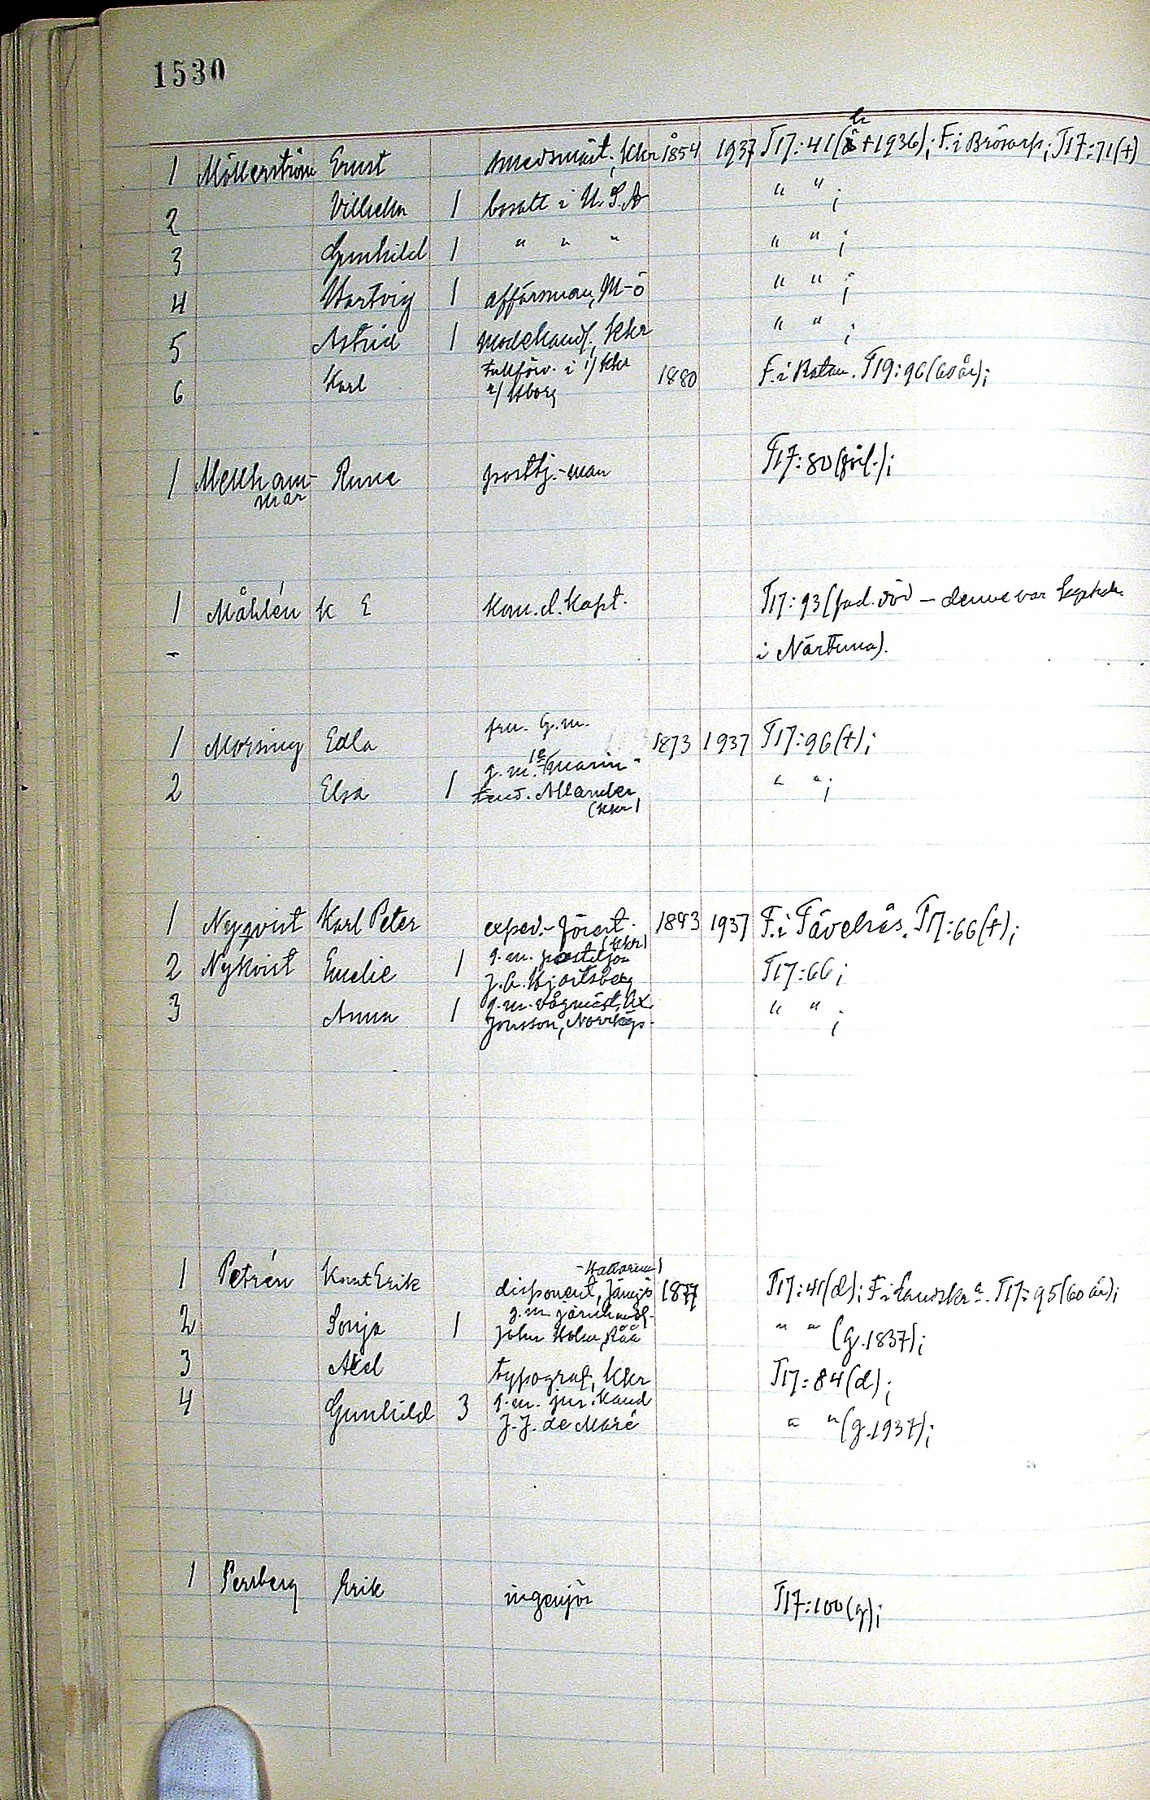 1530
1 Möllerström Ernst smedsmäst., Kkr 1854 1937 T17:41( h †1936); F. i Brösarp; T17:71(†)
2 Vilhelm 1 bosatt i U.S.A " " ;
3 Gunhild 1 " " " " " ;
4 Hartvig 1 affärsman, M-ö " " ;
5 Astrid 1 modehandl., Kkr " " ;
6 Karl Tullförv. i 1/ Kkr 1880 F. i Ratan. T19:96(60 år);
2/ Hborg
1 Mellham- Rune posttj.-man T17:80(förl.);
mar
1 Måhlén K E Kom.d. Kapt. T17:93(fad. död – denne var
- i Närtuna).
1 Morsing Edla fru. G.m. 1873 1937 T17:96(†);
2 Elsa 1 g.m. 1e marin- " " ;
tend. Allander
(Kkr)
1 Nyqvist Karl Peter exped.-förest. 1843 1937 F. i Tävelsås. T17:66(†);
2 Nykvist Emelie 1 g.m. postiljon (Kkr) T17:66;
J. A. Hjortsberg
3 Anna 1 g.m. vågmäst. Ax. " " ;
Jonsson, Norrkgs-
1 Petrén Knut Erik disponent, Järnsjö 1877 T17:41(d); F. i Landskr a. T17:95(60 år);
2 Sonja 1 g.m. järnhandl. " " (g.1837);
John Holm, Råå
3 Axel typograf, Kkr T17:84(d);
4 Gunhild 3 g.m. jur. kand " " (g.1937);
J. J. de Maré
1 Persberg Erik ingenjör T17:100(g);